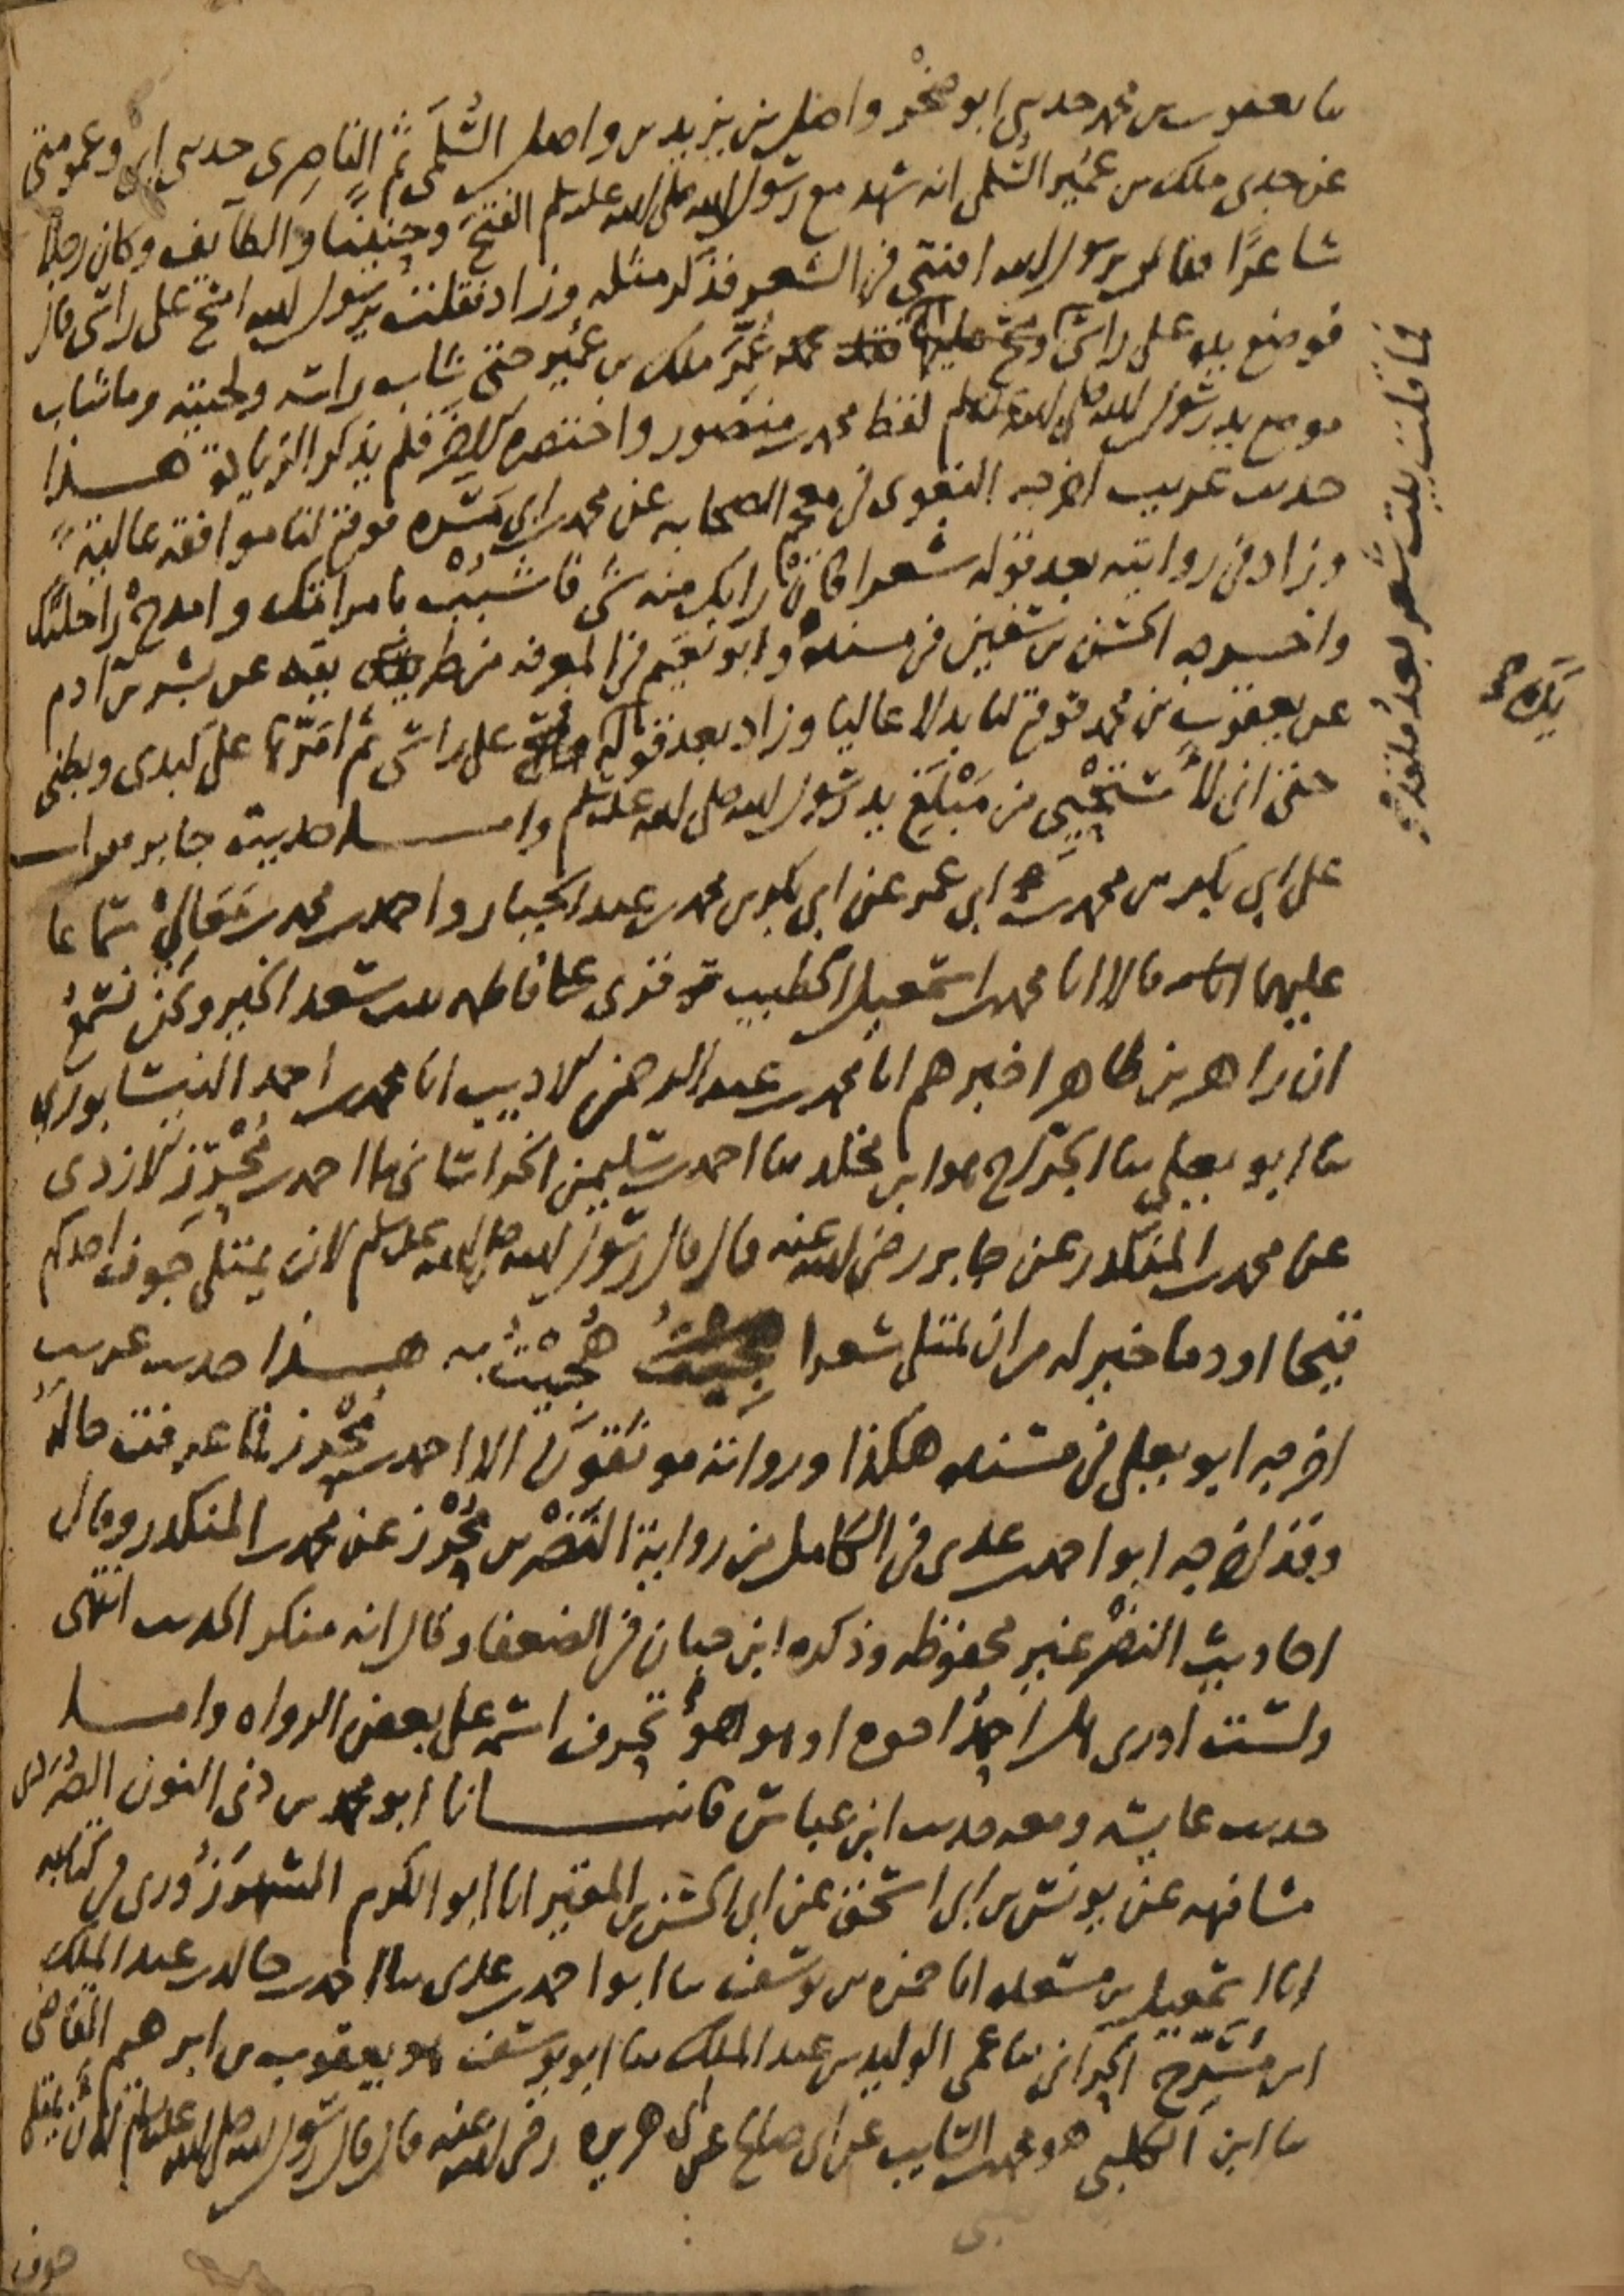 ثنا يعقوب بن محمد حدثني ابو صخر واصل بن يزيد بن واصل السُّلَمي ثم الناصِري حدثني ابي وعمومتي
عن جدي ملك بن عُمَير السُّلمي انه شهد مع رسول الله صلى الله عليه وسلم الفتحَ وحنينًا والطآيف وكان رجلا
شاعرًا فقال يرسول الله افتني في الشعر فذكر مثله وزاد فقلت يرسول الله امسح على راسي قال
فوضع يده على راسي عُمِّر ملك بن عُمَير حتى شاب راسه ولحيته وما شاب
موضع يد رسول الله صلى الله عليه وسلم لفظ محمد بن منصور واختصره الاخر فلم يذكر الزيادة هذا
حديث غريب اخرجه البغوي في معجم الصحابه عن محمد بن ابي مَسَرَّه فوقع لنا موافقه عاليةً
وزاد في روايته بعد قوله شعرا فانْ رابك منه شي فاشبُبْ بامراتك وامدحْ راحلتك
واخرجه الحسَن بن سُفين في مسنده وابو نعَيم في المعرفه من طريق بقيه عن بشر بن ادم
عن يعقوب بن محمد فوقع لنا بدلا عاليا وزاد بعد قوله على راسي ثم امَرَّها على كبدي وبطني
حتى اني لأستَحْيِي من مَبْلَغ يد رسول الله صلى الله عليه وسلم واما حديث جابر فقرات
على ابي بكر بن محمد بن ابي عمر عن ابي بكر بن محمد بن عبد الجبار واحمد بن محمد بن مَعَاليْ سماعا
عليهما قالا انا محمد بن اسمعيل الخطيب قرى على فاطمه بنت سعد الخير ونحن نسمَعُ
ان زاهر بن طاهر اخبرهم انا محمد بن عبد الرحمن الاديب انا محمد بن احمد النيسابوري
ثنا ابو يعلى ثنا الجرّاح هو ابن مخلد ثنا احمد بن سليمن الخراساني ثنا احمد بن مُحْرِز الازدي
عن محمد بن المنكدر عن جابر رضي الله عنه قال قال رسول الله صلى الله عليه وسلم لان يمتلى جوف احدكم
قيحا او دما خير له من ان يمتلى شعرا هُجِيْتُ به هذا حديث غريب
اخرجه ابو يعلى في مسنده هكذا ورواته موثقون الا احمد بن مُحْرِز فما عرفت حالهُ
وقد اخرجه ابو احمد بن عدي في الكامل من رواية النَضْر بن مُحْرِز عن محمد بن المنكدر وقال
احاديث النضْر غير محفوظه وذكره ابن حبان في الضعفا وقال انه منكر الحديث انتهى
ولست ادري هل احمدُ اخوه او هو هوَ تحرف اسمه على بعض الرواه واما
حديث عايشه ومعه حديث ابن عباس فانبانا ابو محمد بن ذي النون الصُرَدي
مشافهه عن يونس بن ابي اسحق عن ابي الحسن بن المقَيّر انا ابو الكرم الشهرَزُوري في كتابه
انا اسمعيل بن مسعده انا حمزه بن يوسف ثنا ابو احمد بن عدي ثنا احمد بن خالد بن عبد الملك
ابن مُسَرِّح الحرّاني ثنا عمي الوليد بن عبد الملك ثنا ابو يوسف يعقوب بن ابرهيم القاضي
ثنا ابن الكلبي هو محمد بن السّايب عن ابي صالح عن ابي هريره رضي الله عنه قال قال رسول الله صلى الله عليه وسلم لأن يمتلى
جوف
فما قلتُ بيتَ شعر بعدُ